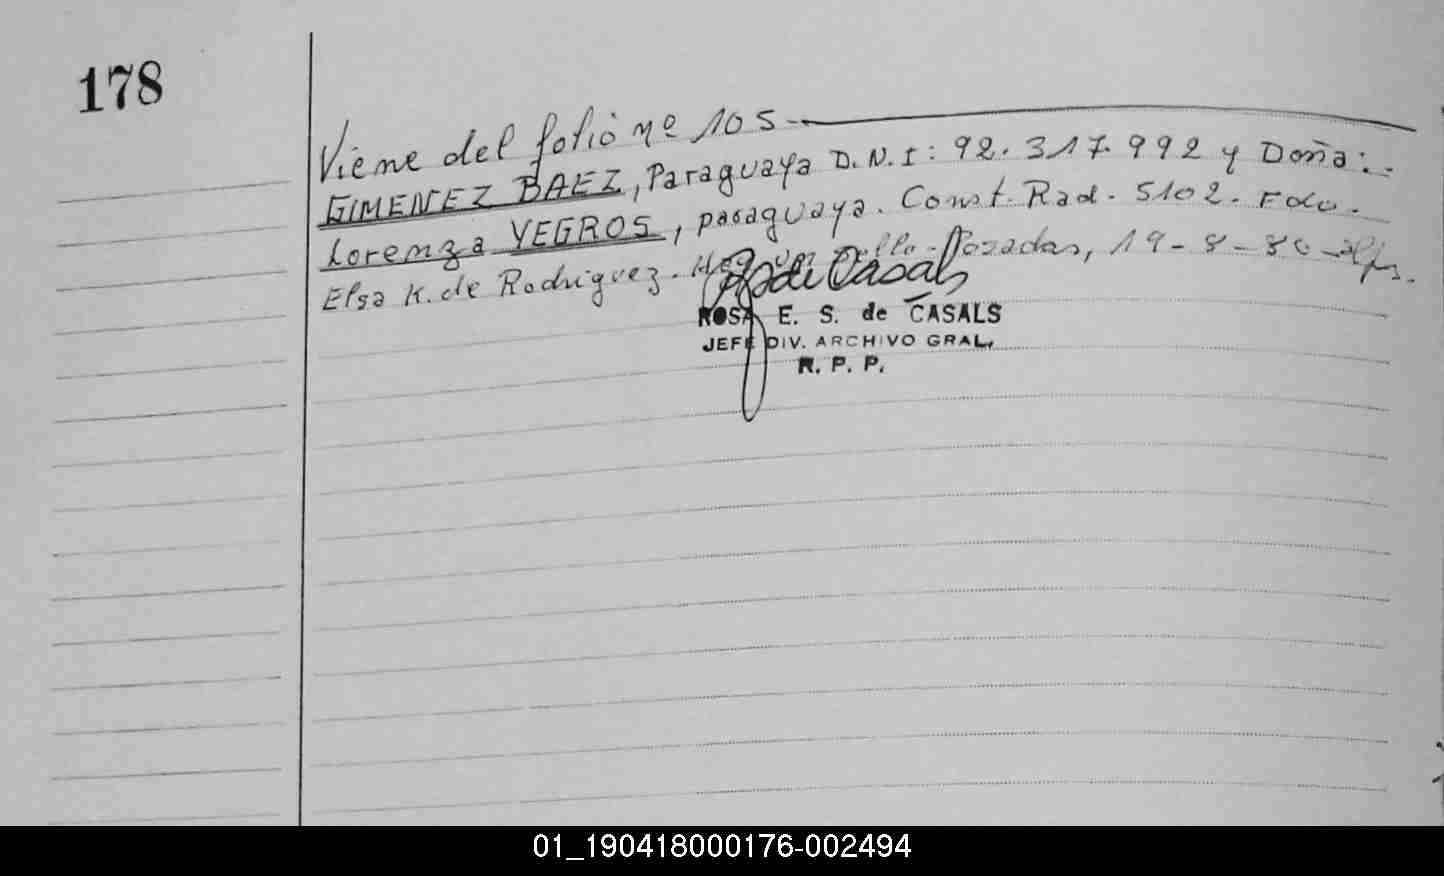 178
Viene del folio nº 105
GIMENEZ BAEZ, Paraguaya D.N.I: 92.317.992 y Doña:.-
Lorenza YEGROS, paraguaya. Const. Rad. 5102. Fdo.
Elsa K. de Rodriguez. Hay un sello. Posadas, 19-8-80
ROSA E. S. de CASALS
JEFE DIV. ARCHIVO GRAL.
R. P. P.
01_190418000176-002494